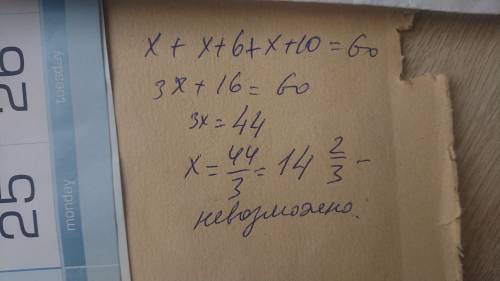 x + x+6+x+10 = 60
3x + 16 = 60
3x = 44
x = 44/3 = 14 2/3 –
невозможно.
26
tuesday
25
monday